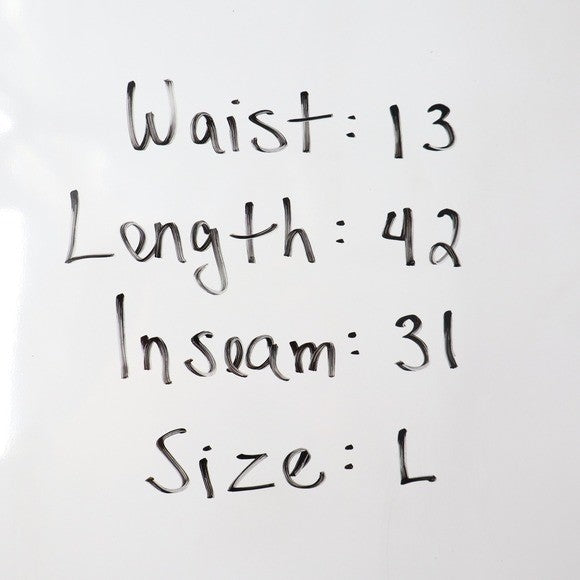 Waist: 13
Length: 42
Inseam: 31
Size: L